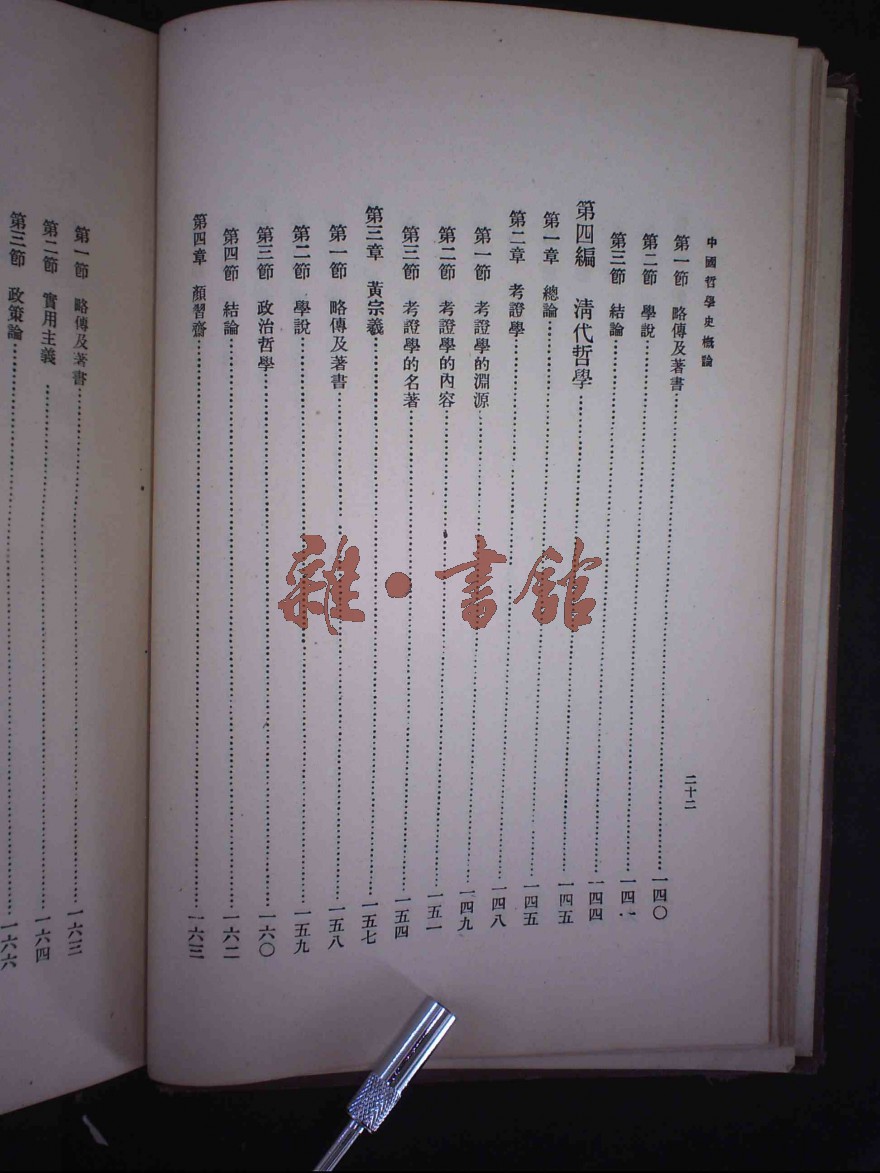 中國哲學史概論
二十二
第一節 略傳及著書……一四〇
第二節 學說……一四一
第三節 結論……一四四
第四編 清代哲學……一四五
第一章 總論……一四五
第二章 考證學……一四八
第一節 考證學的淵源……一四九
第二節 考證學的內容……一五一
第三節 考證學的名著……一五四
第三章 黃宗羲……一五七
第一節 略傳及著書……一五八
第二節 學說……一五九
第三節 政治哲學……一六〇
第四節 結論……一六二
第四章 顏習齋……一六三
第一節 略傳及著書……一六三
第二節 實用主義……一六四
第三節 政策論……一六六
雜·書館